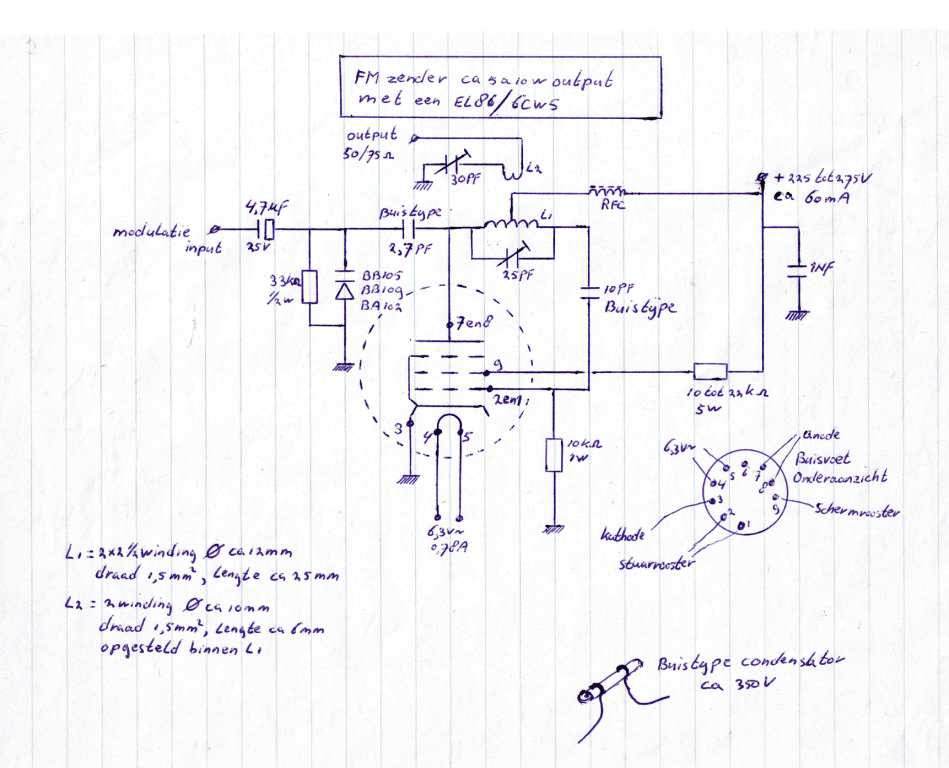 FM zender ca 5 a 10 w output
met een EL86/6CW5
output
50/75Ω
30PF
L2
+ 225 tot 275V
ca 60mA
RFC
4,7µF
25V
modulatie
input
Buistype
2,7PF
L1
25PF
1NF
33kΩ
1/2w
BB105
BB109
BA102
10PF
Buistype
7en8
9
2en1
3
4
5
10 tot 22kΩ
5w
10kΩ
1w
6,3v~
0,78A
6,3v~
anode
Buisvoet
Onderaanzicht
Schermrooster
kathode
stuurrooster
1
2
3
4
5
6
7
8
9
L1 = 2x2 1/2 winding Ø ca 12mm
draad 1,5mm², Lengte ca 25mm
L2 = 2 winding Ø ca 10mm
draad 1,5mm², Lengte ca 6mm
opgesteld binnen L1
Buistype condensator
ca 350V